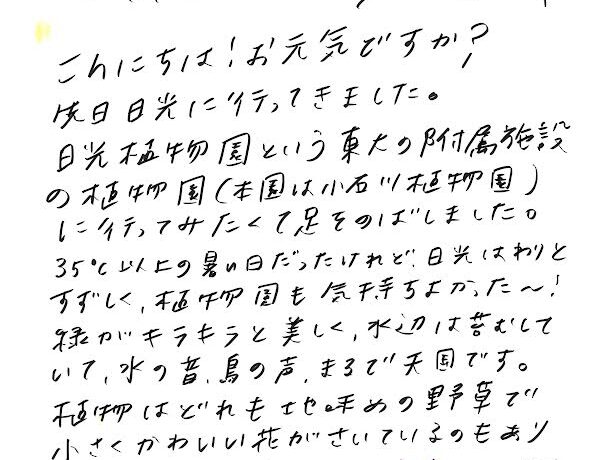 こんにちは！お元気ですか？
先日日光に行ってきました。
日光植物園という東大の附属施設
の植物園（本園は小石川植物園）
に行ってみたくて足をのばしました。
35℃以上の暑い日だったけれど、日光はわりと
すずしく、植物園も気持ちよかった〜！
緑がキラキラと美しく、水辺は苔むして
いて、水の音、鳥の声、まるで天国です。
植物はどれも地味めの野草で
小さくかわいい花がさいているのもあり